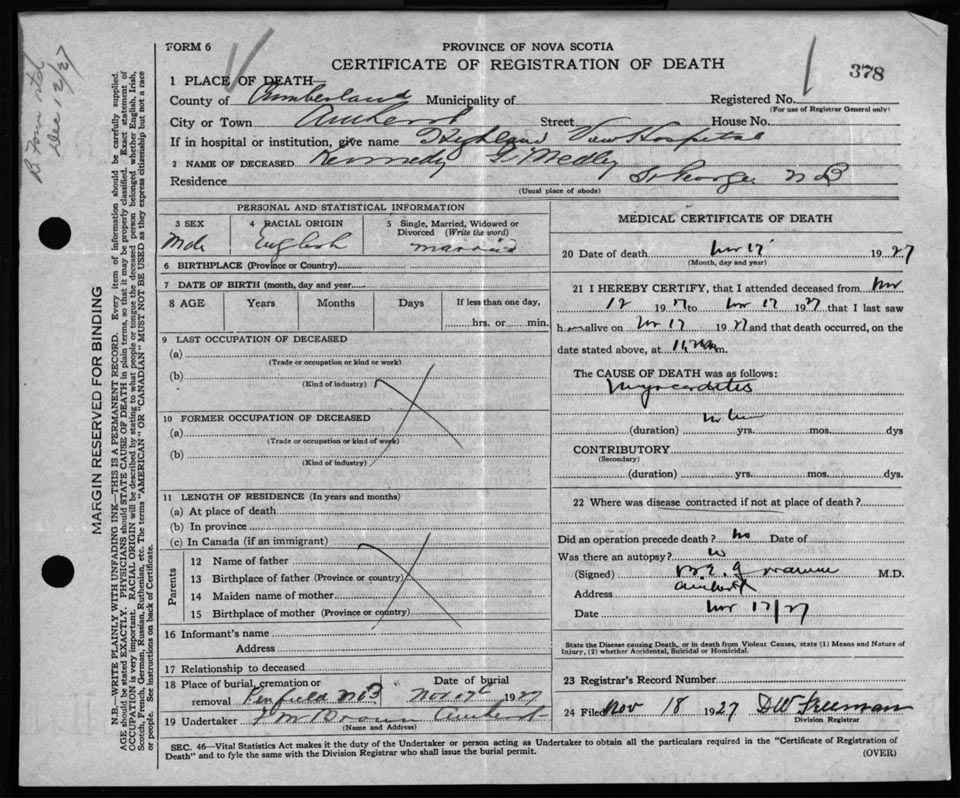 FORM 6
PROVINCE OF NOVA SCOTIA
CERTIFICATE OF REGISTRATION OF DEATH
378
1 PLACE OF DEATH—
County of Cumberland Municipality of Registered No.
(For use of Registrar General only)
City or Town Amherst Street House No.
If in hospital or institution, give name Highland View Hospital
2 NAME OF DECEASED Kennedy G Medley
Residence St George N B
(Usual place of abode)
PERSONAL AND STATISTICAL INFORMATION
3 SEX 4 RACIAL ORIGIN 5 Single, Married, Widowed or Divorced (Write the word)
Male English married
6 BIRTHPLACE (Province or Country)
7 DATE OF BIRTH (month, day and year
8 AGE Years Months Days If less than one day,
hrs. or min.
9 LAST OCCUPATION OF DECEASED
(a)
(Trade or occupation or kind or work)
(b)
(Kind of industry)
10 FORMER OCCUPATION OF DECEASED
(a)
(Trade or occupation or kind of work)
(b)
(Kind of industry)
11 LENGTH OF RESIDENCE (In years and months)
(a) At place of death
(b) In province
(c) In Canada (if an immigrant)
Parents
12 Name of father
13 Birthplace of father (Province or country)
14 Maiden name of mother
15 Birthplace of mother (Province or country)
16 Informant's name
Address
17 Relationship to deceased
18 Place of burial, cremation or removal Penfield N B Date of burial Nov 1927
19 Undertaker Brown Amherst
(Name and Address)
MEDICAL CERTIFICATE OF DEATH
20 Date of death Nov 17 1927
(Month, day and year)
21 I HEREBY CERTIFY, that I attended deceased from Nov
12 1927 to Nov 17 1927 that I last saw
h alive on Nov 17 1927 and that death occurred, on the
date stated above, at 11 m.
The CAUSE OF DEATH was as follows:
Myocarditis
(duration) yrs. mos. dys
CONTRIBUTORY
(Secondary)
(duration) yrs. mos. dys.
22 Where was disease contracted if not at place of death?
Did an operation precede death? No Date of
Was there an autopsy? No
(Signed) M.D.
Address Amherst
Date Nov 17/27
State the Disease causing Death, or in death from Violent Causes, state (1) Means and Nature of
Injury, (2) whether Accidental, Suicidal or Homicidal.
23 Registrar's Record Number
24 Filed Nov 18 1927 DW Freeman
Division Registrar
SEC. 46—Vital Statistics Act makes it the duty of the Undertaker or person acting as Undertaker to obtain all the particulars required in the "Certificate of Registration of
Death" and to fyle the same with the Division Registrar who shall issue the burial permit. (OVER)
MARGIN RESERVED FOR BINDING
N.B.—WRITE PLAINLY WITH UNFADING INK—THIS IS A PERMANENT RECORD. Every item of information should be carefully supplied.
AGE should be stated EXACTLY. PHYSICIANS should STATE CAUSE OF DEATH in plain terms, so that it may be properly classified. Exact statement of
OCCUPATION is very important. RACIAL ORIGIN will be described by stating to what people or tongue the deceased person belonged whether English, Irish,
Scotch, French, German, Russian, Ruthenian, etc. The terms "AMERICAN" OR "CANADIAN" MUST NOT BE USED as they express citizenship but not a race
or people. See instructions on back of Certificate.
Dec 12/27